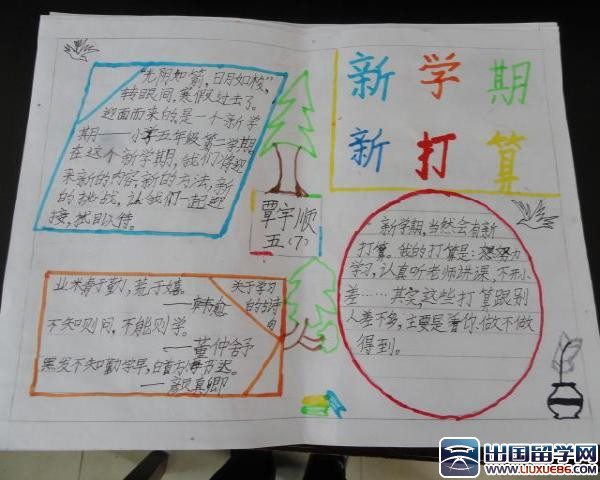 "光阴如箭，日月如梭"，
转眼间，寒假过去了。
迎面而来的是一个新学
期——小学五年级第二学期。
在这个新学期，我们将迎
来新的内容，新的方法，新
的挑战，让我们一起迎
接，拭目以待。
新学期
新打算
覃宇顺
五(7)
新学期，当然会有新
打算。我的打算是：想努力
学习，认真听老师讲课，不开小
差……其实，这些打算跟别
人差不多，主要是看你做不做
得到。
关于学习
的古诗
句
业精于勤，荒于嬉。
——韩愈
不知则问，不能则学。
——董仲舒
黑发不知勤学早，白首方悔读书迟。
——颜真卿
出国留学网
www.LIUXUE86.COM